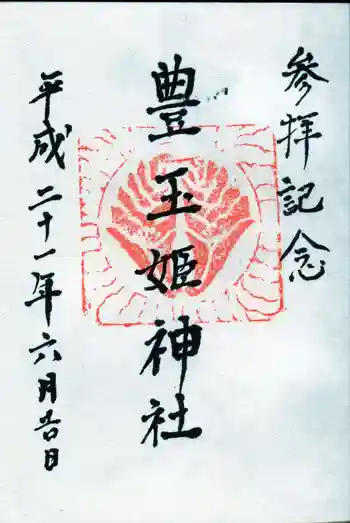 参拝記念
豊玉姫神社
平成二十一年六月吉日